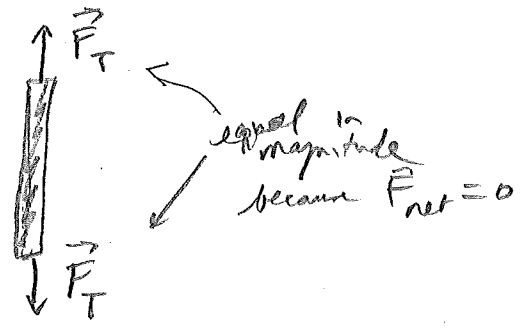 F⃗_T
equal in
magnitude
because F⃗_net = 0
F⃗_T